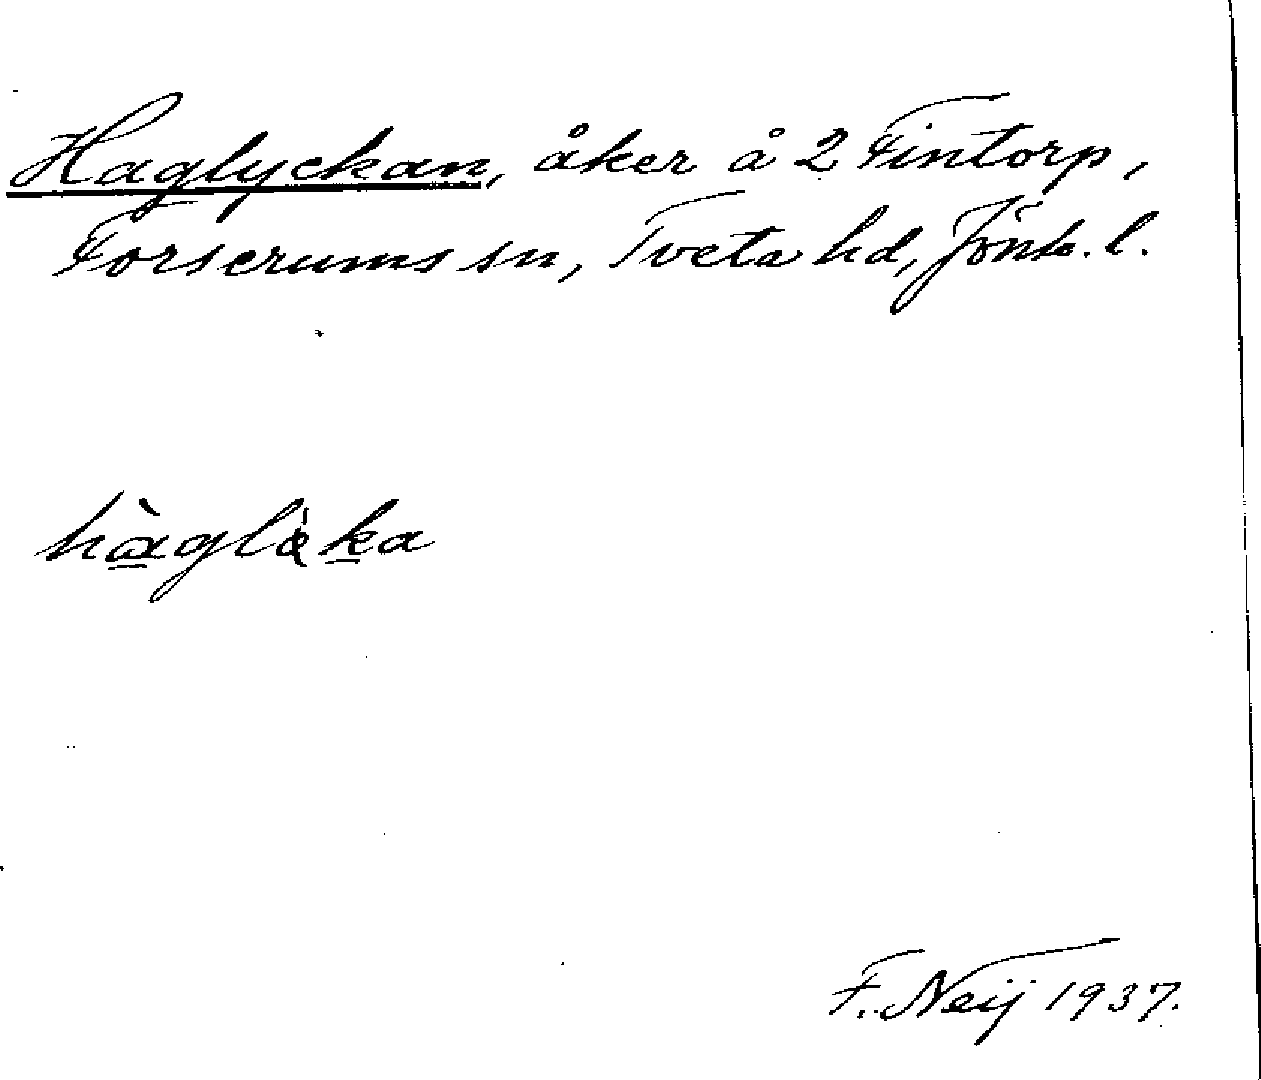 Haglyckan, åker å 2 Fintorp,
Forserums sn, Tveta hd, Jönk. l.
F. Neij 1937.